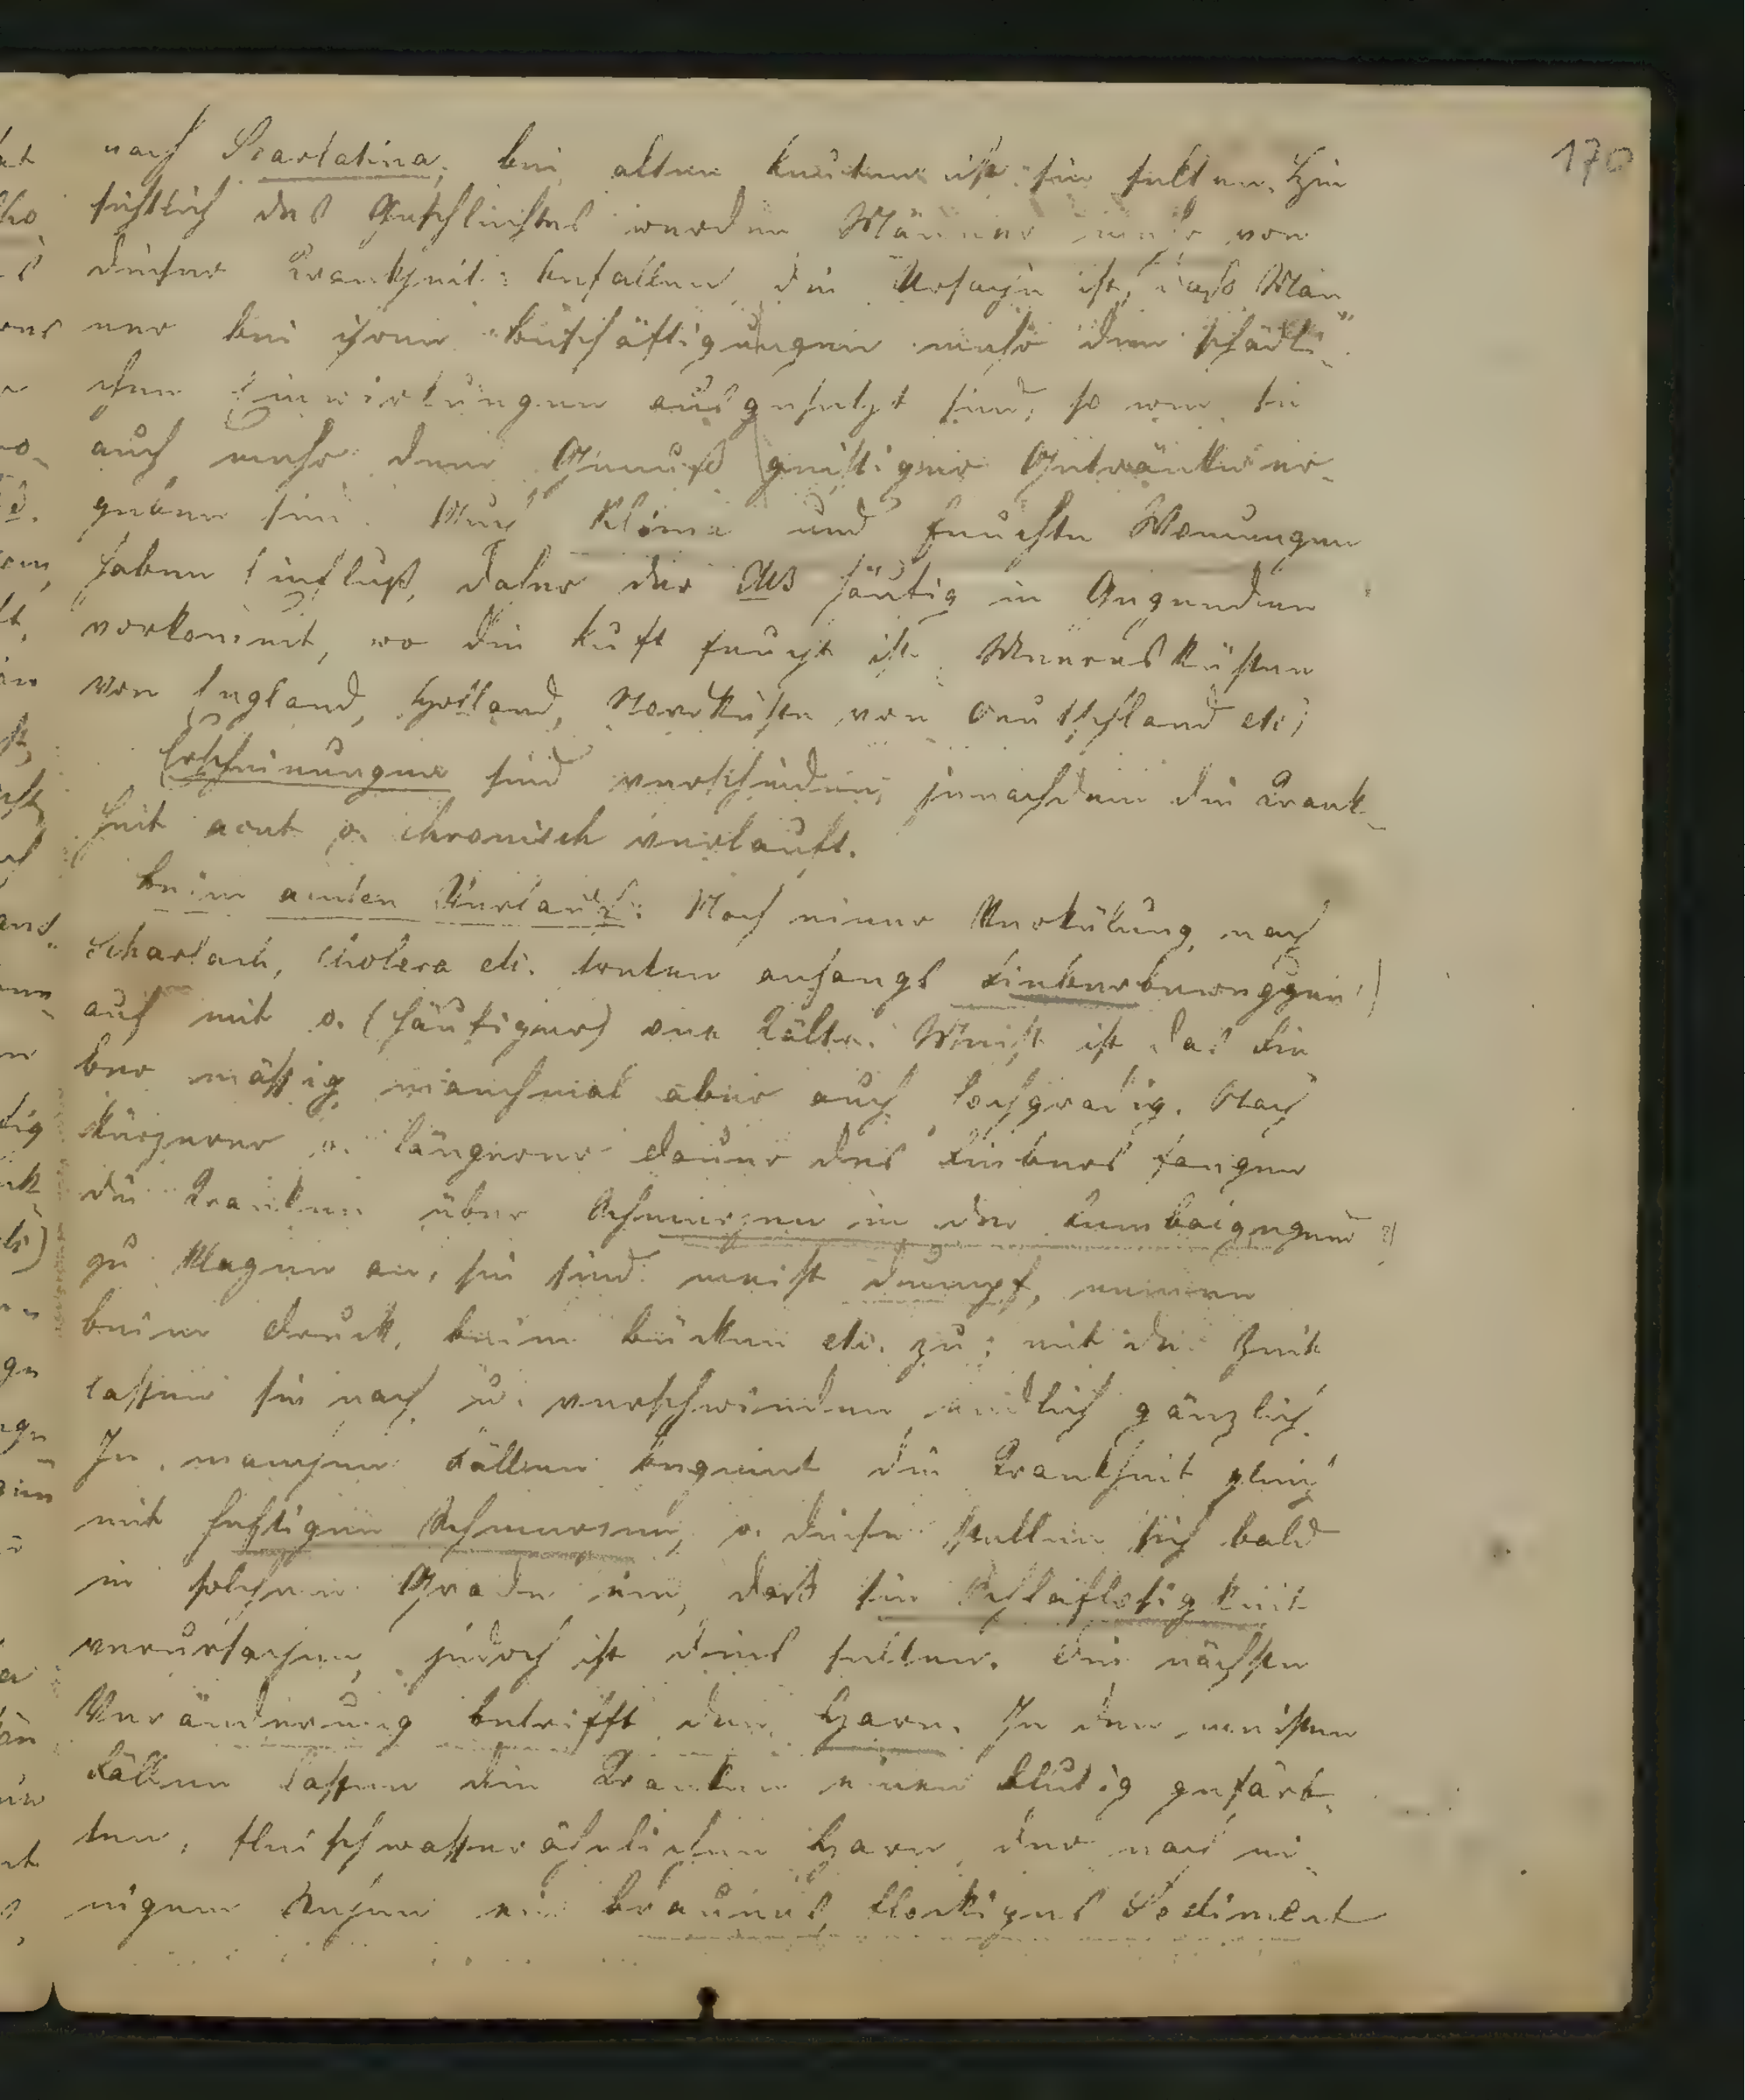 170
nach Scarlatina; bei alten Leuten ist sie selten. Hin
sichtlich des Geschlechtes werden Männer mehr von
dieser Krankheit befallen, die Ursache ist, daß Män
ner bei ihren Beschäftigungen mehr den schädli
chen Einwirkungen ausgesetzt sind, so wie sie
auch mehr dem Genuß geistiger Getränke er-
geben sind. Auch Klima und feuchte Wonungen
haben Einfluß, daher der MB häufig in Gegenden
vorkommt, wo die Luft feucht ist, Meeresküsten
von England, Holland, Nordküste von Deutschland etc;
Erscheinungen sind verschieden, jenachdem die Krank-
heit acut o. chronisch verlauft.
beim acuten Verlauf: Nach einer Verkülung, nach
Scharlach, Cholera etc. treten anfangs Fieberbewegugen
auf mit o. (häufiger) one Kälte. Meist ist das Fie
ber mässig, manchmal aber auch hochgradig. Nach
kürzerer o. längerer Dauer des Fiebers fangen
die Kranken über Schmerzen in der Lumbalgegend
zu klagen an, sie sind meist dumpf, nemen
beim Druck, beim bücken etc. zu; mit der Zeit
lassen sie nach u. verschwinden endlich gänzlich.
In manchen Fällen beginnt die Krankheit gleich
mit heftigen Schmerzen, o. diese stellen sich bald
in solchem Grade ein, daß sie Schlaflosigkeit
verursachen, jedoch ist dies selten. Die nächste
Veränderung betrifft den Harn. In den meisten
Fällen lassen die Kranken einen blutig gefärb-
ten, fleischwasserähnlichen Harn, der nach ei-
nigem Stehen ein braunes, flockiges Sediment